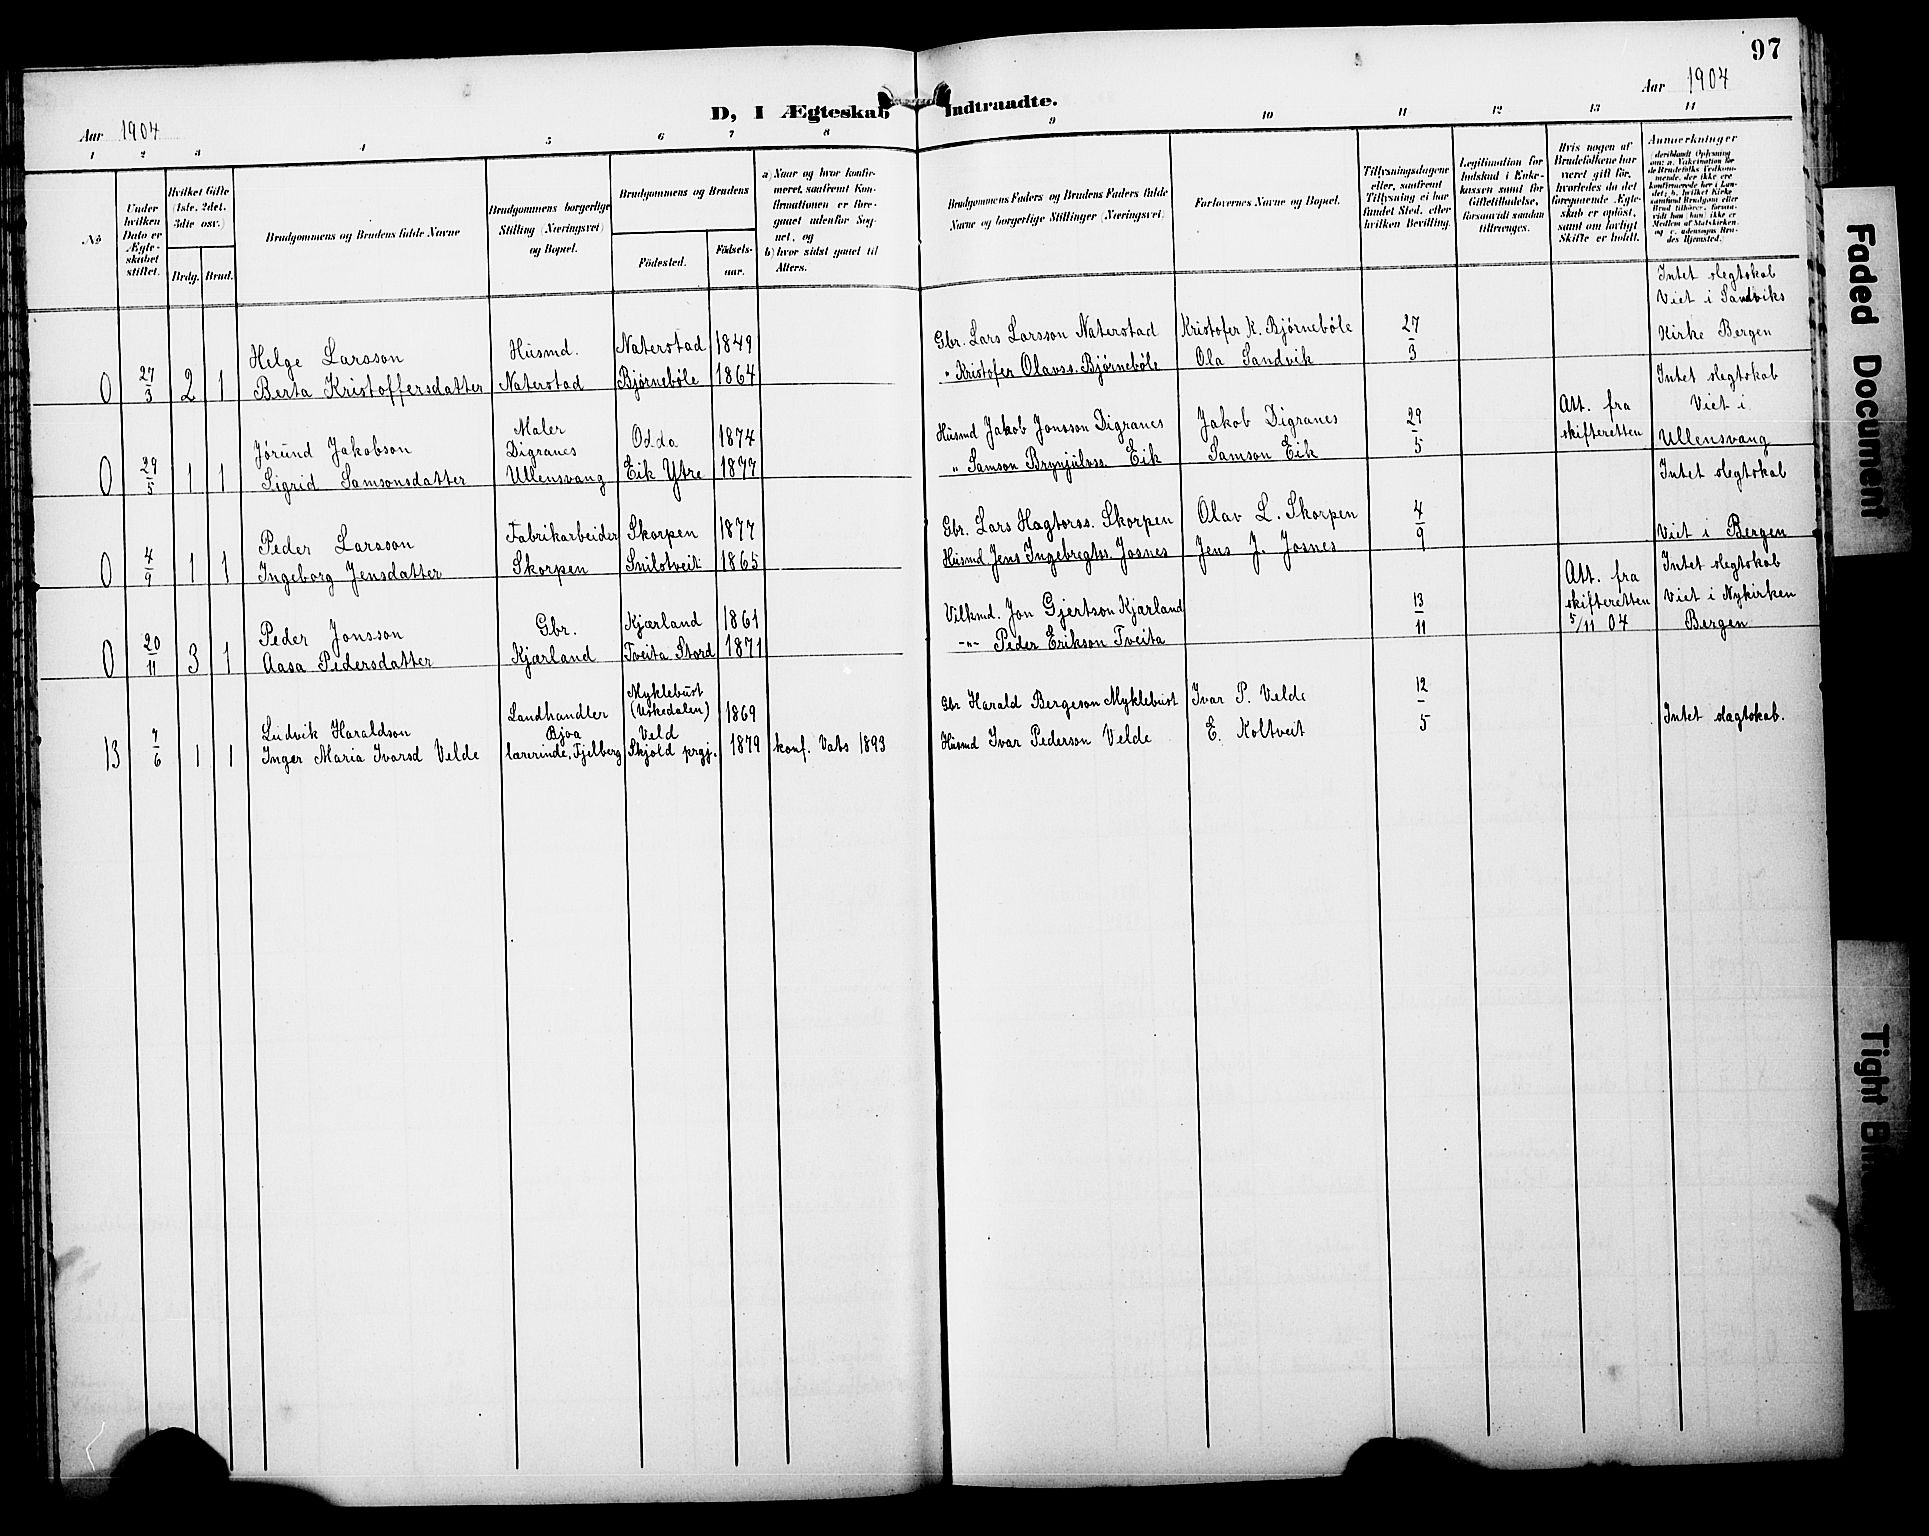 97
Aar 1904
Aar 1904
D, I Ægteskab Indtraadte.
1 2 3 4 5 6 7 8 9 10 11 12 13 14
No
Under hvilken Dato er Ægteskabet stiftet.
Hvilket Gifte (1ste, 2det, 3die osv.)
Brdg. Brud.
Brudgommens og Brudens fulde Navne
Brudgommens borgerlige Stilling (Næringsvei) og Bopæl.
Brudgommens og Brudens
Födested.
Födselsaar.
a) Naar og hvor konfirmeret, saafremt Konfirmationen er foregaaet udenfor Sognet, og
b) hvor sidst gaaet til Alters.
Brudgommens Faders og Brudens Faders fulde Navne og borgerlige Stillinger (Næringsvei)
Forlovernes Navne og Bopæl.
Tillysningsdagene eller, saafremt Tillysning ei har fundet Sted, efter hvilken Bevilling.
Legitimation for Indskud i Enkekassen samt for Giftetilladelse, forsaavidt saadan tiltrænges.
Hvis nogen af Brudefolkene har været gift för, hvorledes da det foregaaende Ægteskab er oplöst, samt om lovligt Skifte er holdt.
Anmærkninger
Intet slegtskab
Viet i Sandviks
Helge Larsson Husmd. Naterstad 1849 Gbr. Lars Larsson Naterstad Kristofer K. Bjørnebøle 27 Kirke Bergen
0 27/3 2 1 Berta Kristoffersdatter Naterstad Bjørnebøle 1864 " Kristofer Olavss. Bjørnebøle Ola Sandvik 3
Intet slegtskab
Maler Att. fra Viet i
Jørund Jakobson Digranes Odda 1874 Husmd Jakob Jonsson Digranes Jakob Digranes 29 skifteretten Ullensvang
0 29/5 1 1 Sigrid Samsonsdatter Ullensvang Eik Ytre 1877 " Samson Brynjulvss. Eik Samson Eik 5
Intet slegtskab
Peder Larsson Fabrikarbeider Skorpen 1877 Gbr. Lars Hagtorss. Skorpen Olav L. Skorpen 4 Viet i Bergen
0 4/9 1 1 Ingeborg Jensdatter Skorpen Snilstveit 1865 Husmd Jens Ingebregtss. Josnes Jens J. Josnes 9
Att. fra Intet slegtskab
Peder Jonsson Gbr. Kjærland 1861 Vilkmd. Jon Gjertson Kjærland 13 skifteretten Viet i Nykirken
0 20/11 3 1 Aasa Pedersdatter Kjærland Tveita Stord 1871 -"- Peder Erikson Tveita 11 5/11 04 Bergen
Myklebust
Landhandler (Uskedalen) 1869 Gbr Harald Bergeson Myklebust Ivar P. Velde 12
Ludvik Haraldson Bjoa Veld Intet slagtskab.
13 7/6 1 1 Inger Maria Ivarsd Velde lærerinde, Fjelberg Skjold prgj. 1879 konf. Vats 1893 Husmd Ivar Pederson Velde E. Koltveit 5
Faded Document
Tight